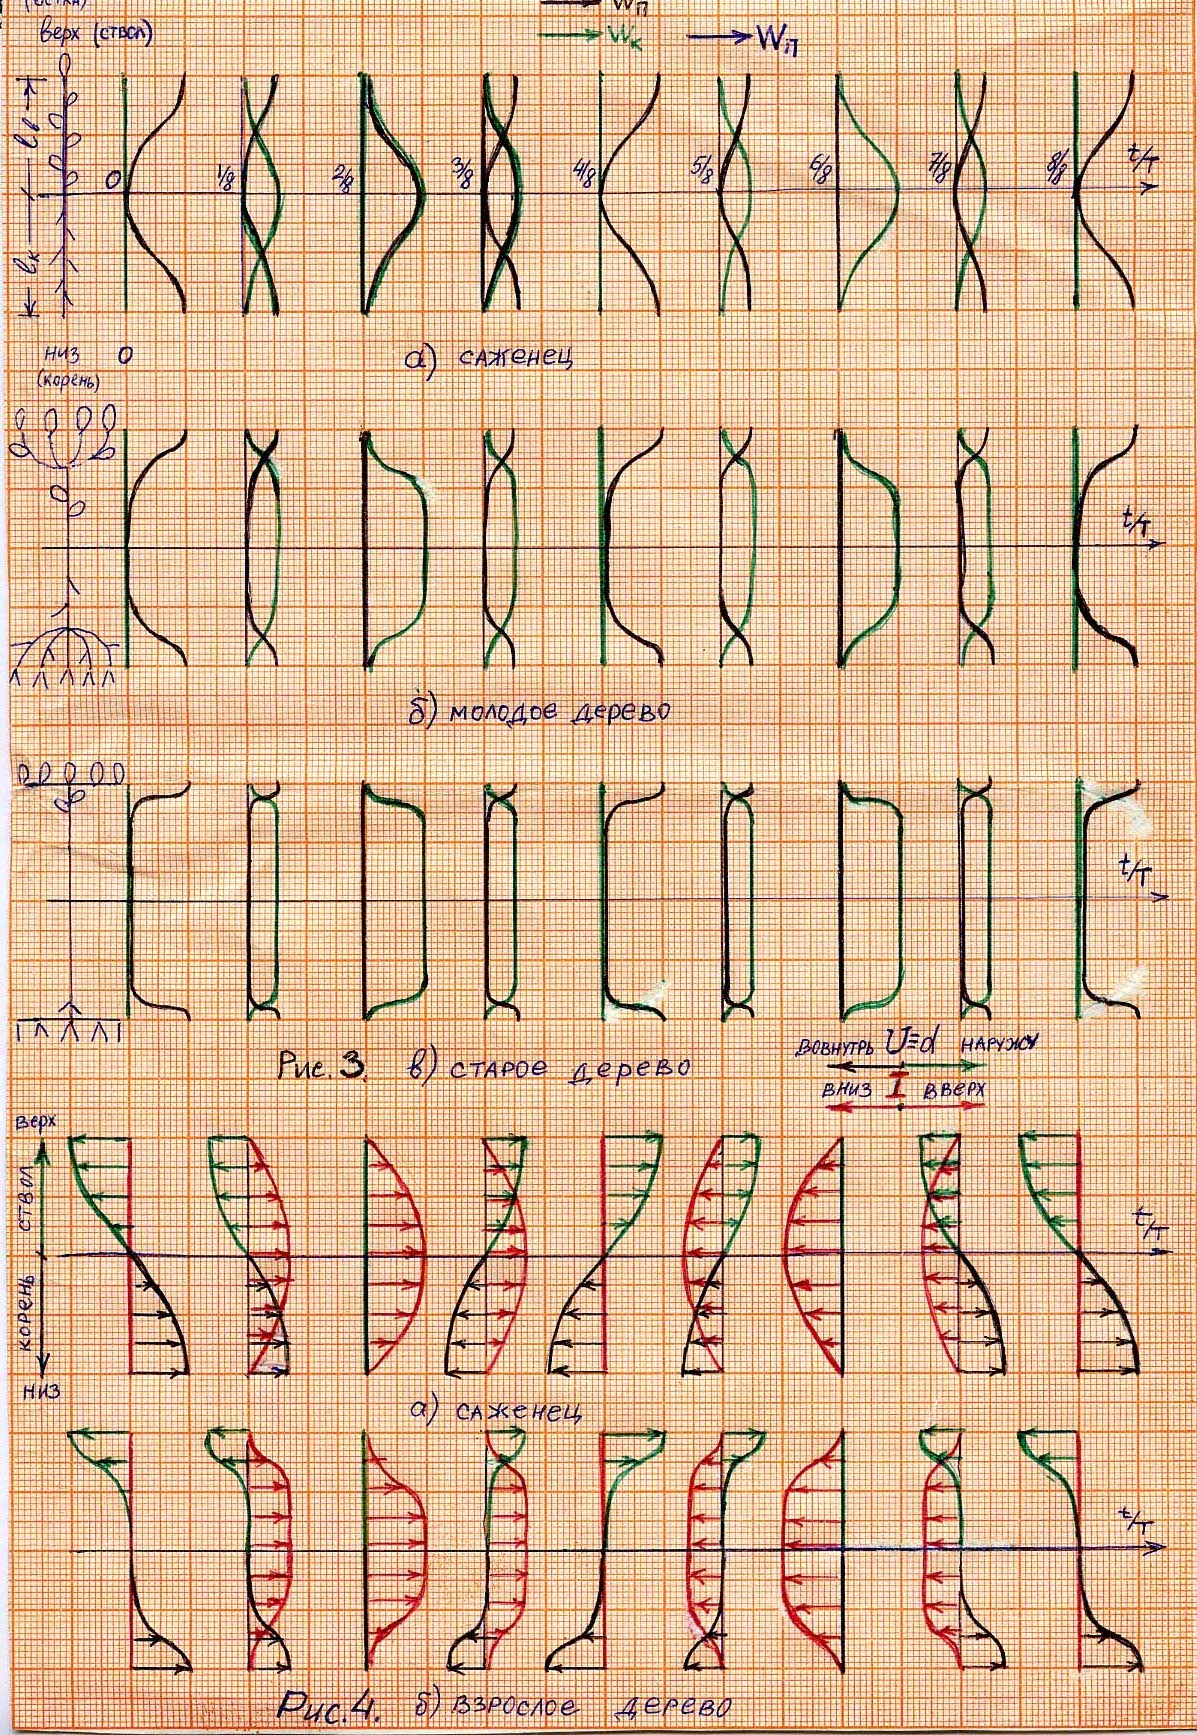 Wп
верх (ствол)
Wк Wп
lв
lк
0 1/8 2/8 3/8 4/8 5/8 6/8 7/8 8/8 t/T
низ 0
(корень)
а) саженец
t/T
б) молодое дерево
t/T
Рис. 3. в) старое дерево
вовнутрь U≡d наружу
вниз I вверх
верх
ствол
корень
t/T
низ
а) саженец
t/T
Рис. 4. б) взрослое дерево